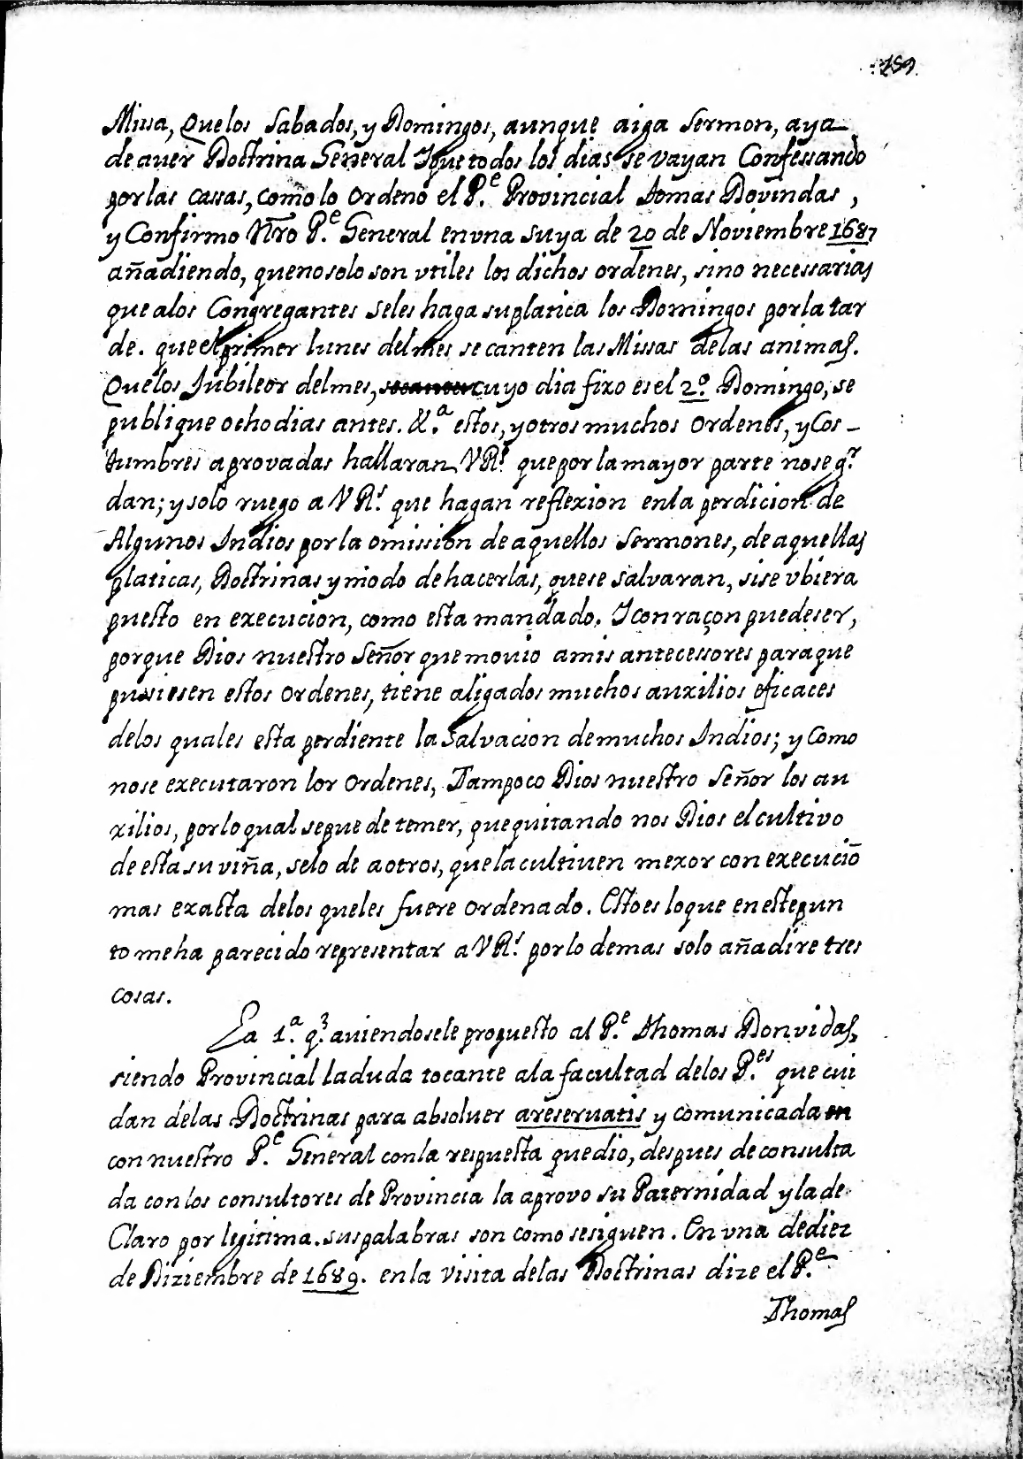 189.
Missa, Que los Sabados, y Domingos, aunque aiga Sermon, aya
de aver Doctrina General Y que todos los dias se vayan Confessando
por las cassas, como lo ordeno el P.e Provincial tomas Dovindas,
y Confirmo Nro P.e General en vna suya de 20 de Noviembre 1687
añadiendo, que no solo son vtiles los dichos ordenes, sino necessarias
que alos Congregantes seles haga su platica los Domingos por la tar
de. que el primer lunes del mes se canten las Missas delas animas.
Que los Jubileos del mes, cuyo dia fixo es el 2.º Domingo, se
publique ocho dias antes. &.a estos, y otros muchos ordenes, y Cos-
tumbres aprovadas hallaran VR.s que por la mayor parte no se g.r
dan; y solo ruego a VR.s que hagan reflexion en la perdicion de
Algunos Indios por la omission de aquellos Sermones, de aquellas
platicas, Doctrinas y modo de hacerlas, que se salvaran, si se vbiera
puesto en execucion, como esta mandado. Y con raçon puede ser,
porque Dios nuestro Señor que movio a mis antecessores para que
pusiesen estos ordenes, tiene aligados muchos auxilios eficaces
delos quales esta perdiente la salvacion de muchos Indios; y Como
no se executaron los ordenes, Tampoco Dios nuestro Señor los au
xilios, por lo qual se pue de temer, que quitando nos Dios el cultivo
de esta su viña, selo de a otros, que la cultiven mexor con execucio̅
mas exacta delos queles fuere ordenado. Esto es lo que en este pun
to me ha parecido representar a VR.s por lo demas solo añadire tres
cosas.
La 1.a q.e aviendosele propuesto al P.e Thomas Donvidas,
siendo Provincial la duda tocante ala facultad delos P.es que cui
dan delas Doctrinas para absolver areservatis y comunicada
con nuestro P.e General con la respuesta que dio, despues de consulta
da con los consultores de Provincia la aprovo su Paternidad y la de
Claro por legitima. sus palabras son como se siguen. En vna de diez
de Diziembre de 1689. en la visita delas Doctrinas dize el P.e
Thomas